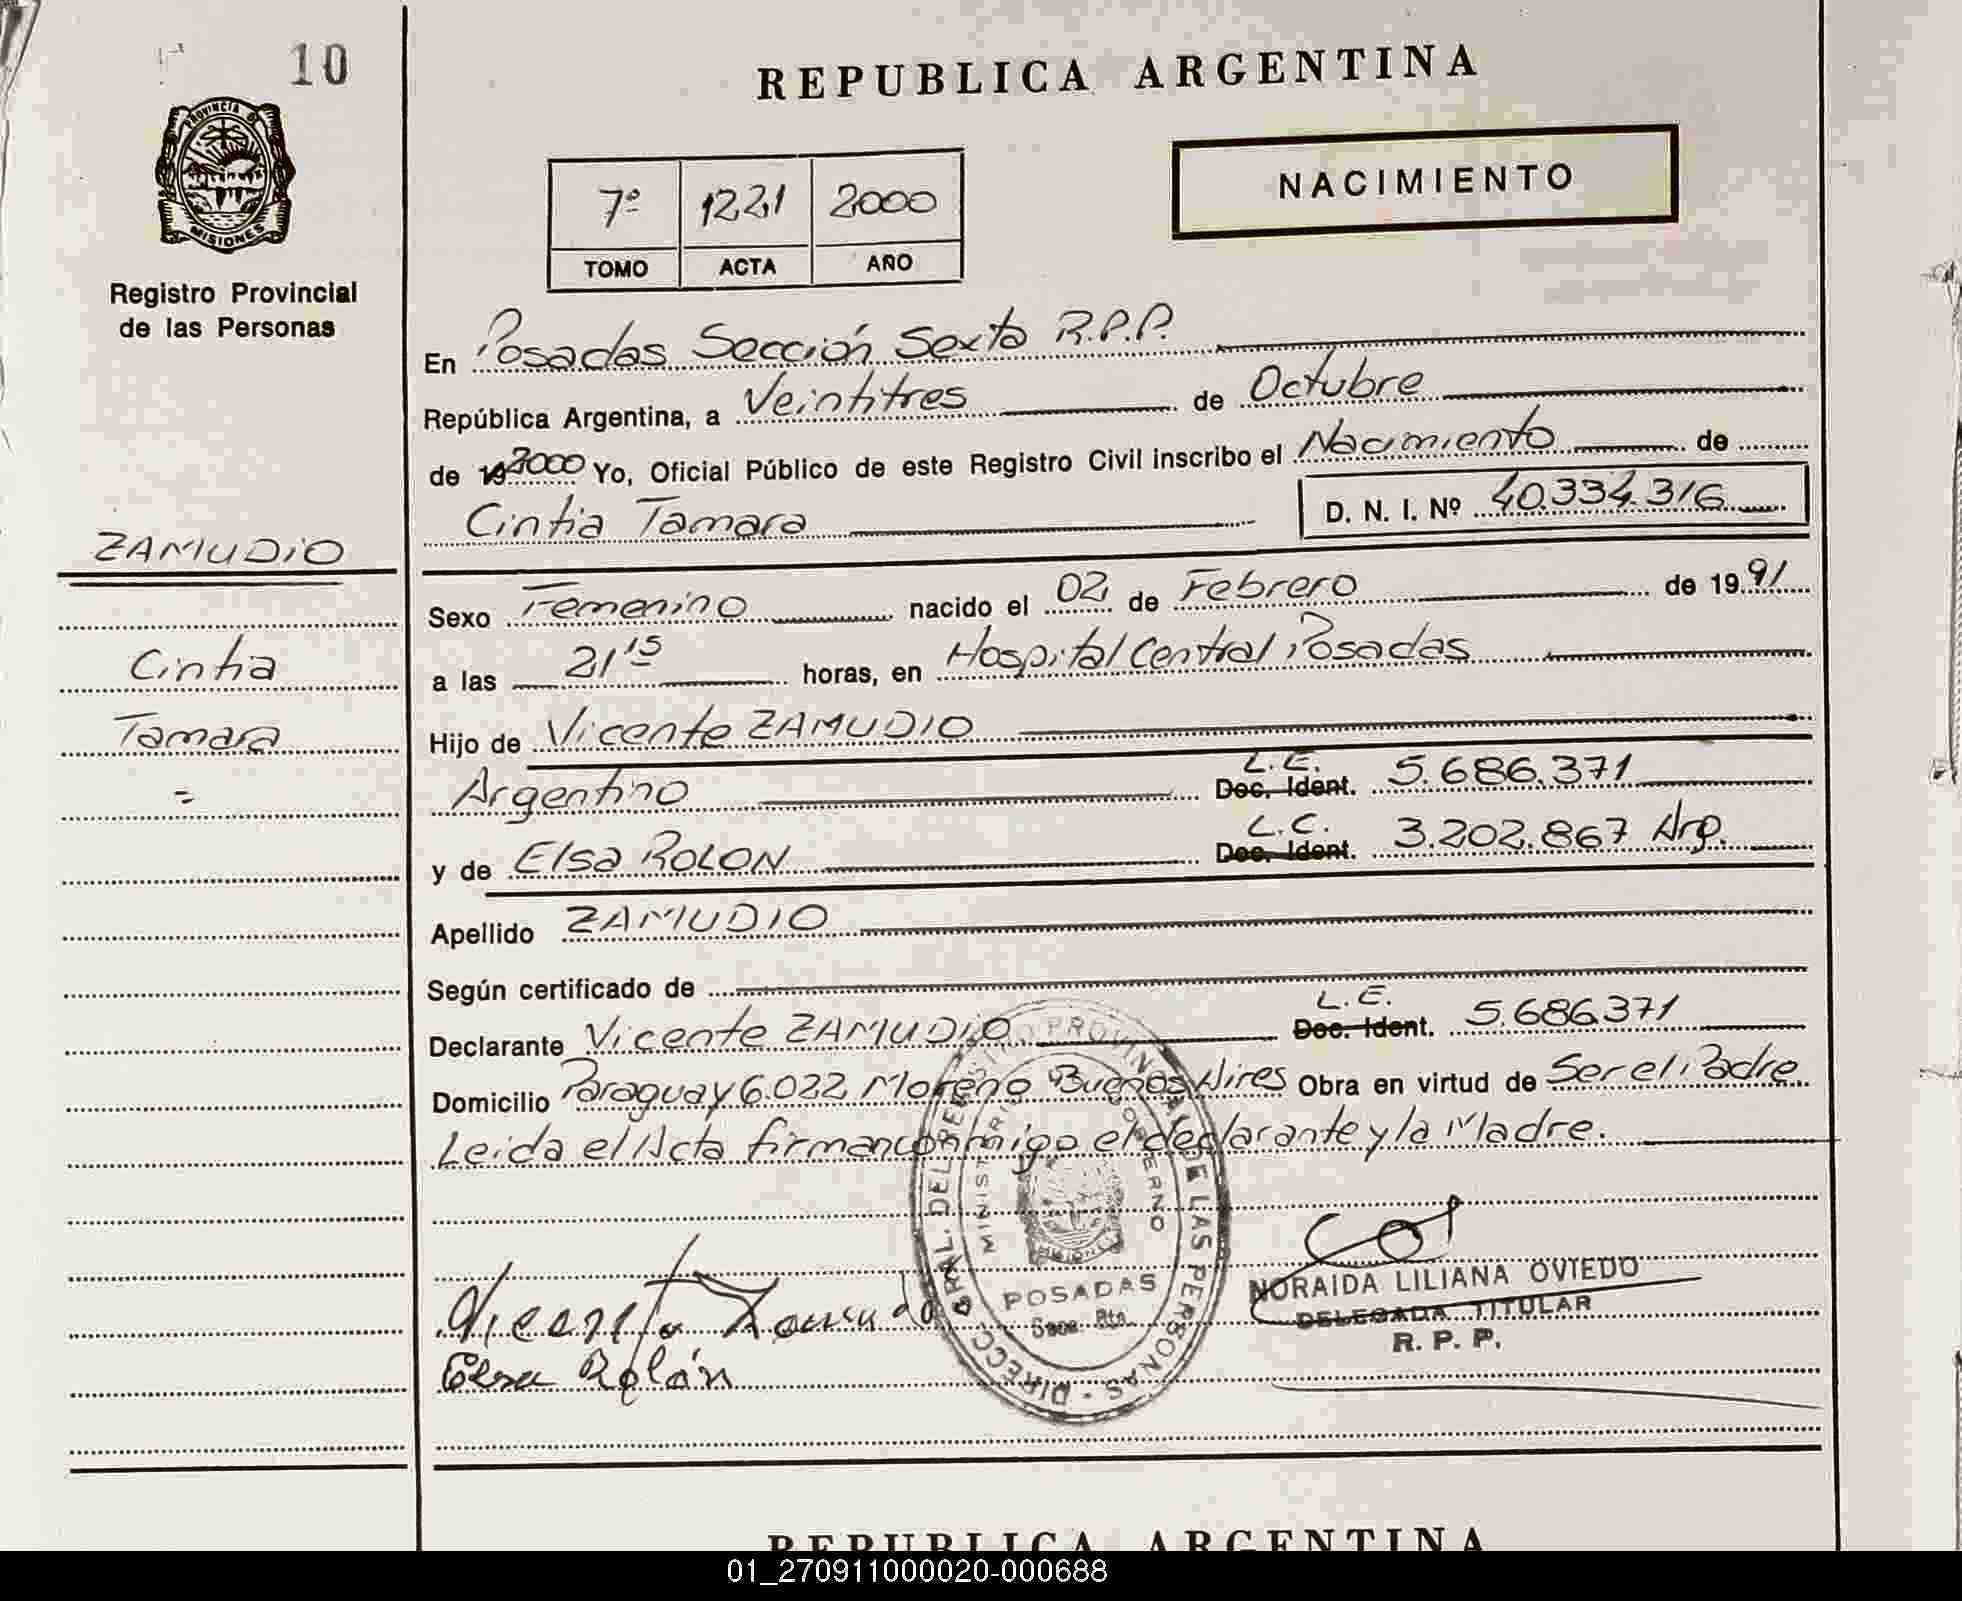 10
REPUBLICA ARGENTINA
PROVINCIA DE
MISIONES
Registro Provincial
de las Personas
NACIMIENTO
7º 1221 2000
TOMO ACTA AÑO
En Posadas Sección Sexta R.P.P.
República Argentina, a Veintitres de Octubre
de 19 2000 Yo, Oficial Público de este Registro Civil inscribo el Nacimiento de
Cintia Tamara D. N. I. Nº 40.334.316
ZAMUDIO
Cintia
Tamara
Sexo Femenino nacido el 02 de Febrero de 19 91
a las 21 15 horas, en Hospital Central Posadas
Hijo de Vicente ZAMUDIO
Argentino L.E. Doc. Ident. 5.686.371
y de Elsa ROLON L.C. Doc. Ident. 3.202.867 Arg.
Apellido ZAMUDIO
Según certificado de
Declarante Vicente ZAMUDIO L.E. Doc. Ident. 5.686.371
Domicilio Paraguay 6.022 Moreno Buenos Aires Obra en virtud de Ser el Padre
Leida el Acta firman conmigo el declarante y la Madre.
DIRECC. GRAL. DEL REGISTRO PROVINCIAL DE LAS PERSONAS
MINISTERIO GOBIERNO
MISIONES
POSADAS
Vicente Zamudio
Elsa Rolón
NORAIDA LILIANA OVIEDO
DELEGADA TITULAR
R. P. P.
REPUBLICA ARGENTINA
01_270911000020-000688